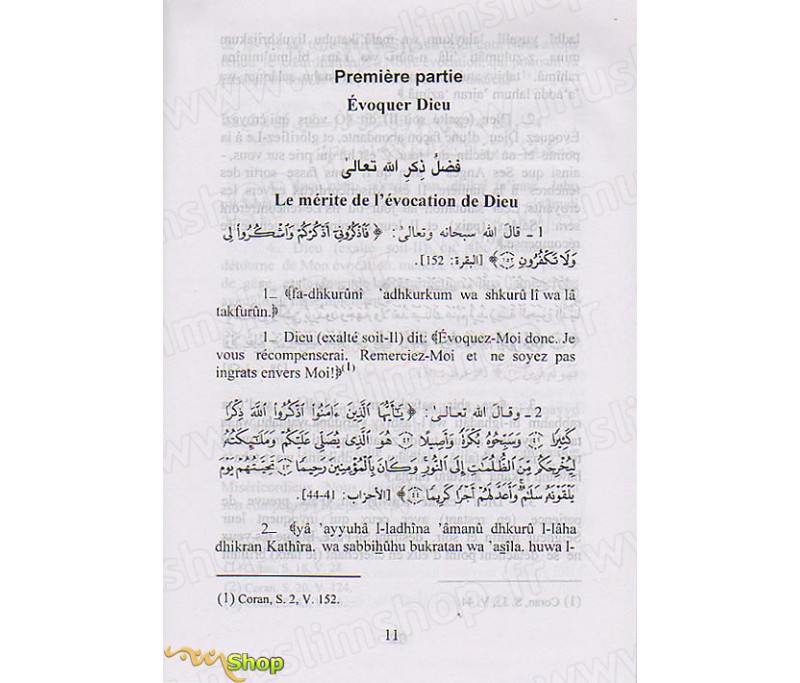 Première partie
Évoquer Dieu
فَضلُ ذِكرِ الله تعالىٰ
Le mérite de l'évocation de Dieu
1 ـ قالَ الله سبحانه وتعالىٰ: ﴿ فَاذْكُرُونِي أَذْكُرْكُمْ وَاشْكُرُوا لِي
وَلَا تَكْفُرُونِ ﴿١٥٢﴾ ﴾ [البقرة: 152].
1_ ﴾fa-dhkurûnî 'adhkurkum wa shkurû lî wa lâ
takfurûn.﴿
1_ Dieu (exalté soit-Il) dit: ﴾Évoquez-Moi donc. Je
vous récompenserai. Remerciez-Moi et ne soyez pas
ingrats envers Moi!﴿(1)
2 ـ وقالَ الله تعالىٰ: ﴿ يَٰٓأَيُّهَا ٱلَّذِينَ ءَامَنُوا۟ ٱذْكُرُوا۟ ٱللَّهَ ذِكْرًا
كَثِيرًا ﴿٤١﴾ وَسَبِّحُوهُ بُكْرَةً وَأَصِيلًا ﴿٤٢﴾ هُوَ ٱلَّذِى يُصَلِّى عَلَيْكُمْ وَمَلَٰٓئِكَتُهُۥ
لِيُخْرِجَكُم مِّنَ ٱلظُّلُمَٰتِ إِلَى ٱلنُّورِ ۚ وَكَانَ بِٱلْمُؤْمِنِينَ رَحِيمًا ﴿٤٣﴾ تَحِيَّتُهُمْ يَوْمَ
يَلْقَوْنَهُۥ سَلَٰمٌ ۚ وَأَعَدَّ لَهُمْ أَجْرًا كَرِيمًا ﴿٤٤﴾ ﴾ [الأحزاب: 41-44].
2_ ﴾yâ 'ayyuhâ l-ladhîna 'âmanû dhkurû l-lâha
dhikran Kathîra. wa sabbihûhu bukratan wa 'asîla. huwa l-
(1) Coran, S. 2, V. 152.
11
Shop